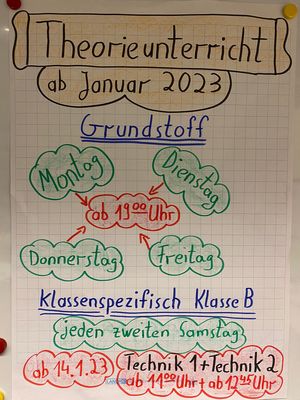 Theorieunterricht
ab Januar 2023
Grundstoff
Montag
Dienstag
ab 19⁰⁰ Uhr
Donnerstag
Freitag
Klassenspezifisch Klasse B
jeden zweiten Samstag
ab 14.1.23
Technik 1 + Technik 2
ab 11⁰⁰ Uhr + ab 12⁴⁵ Uhr